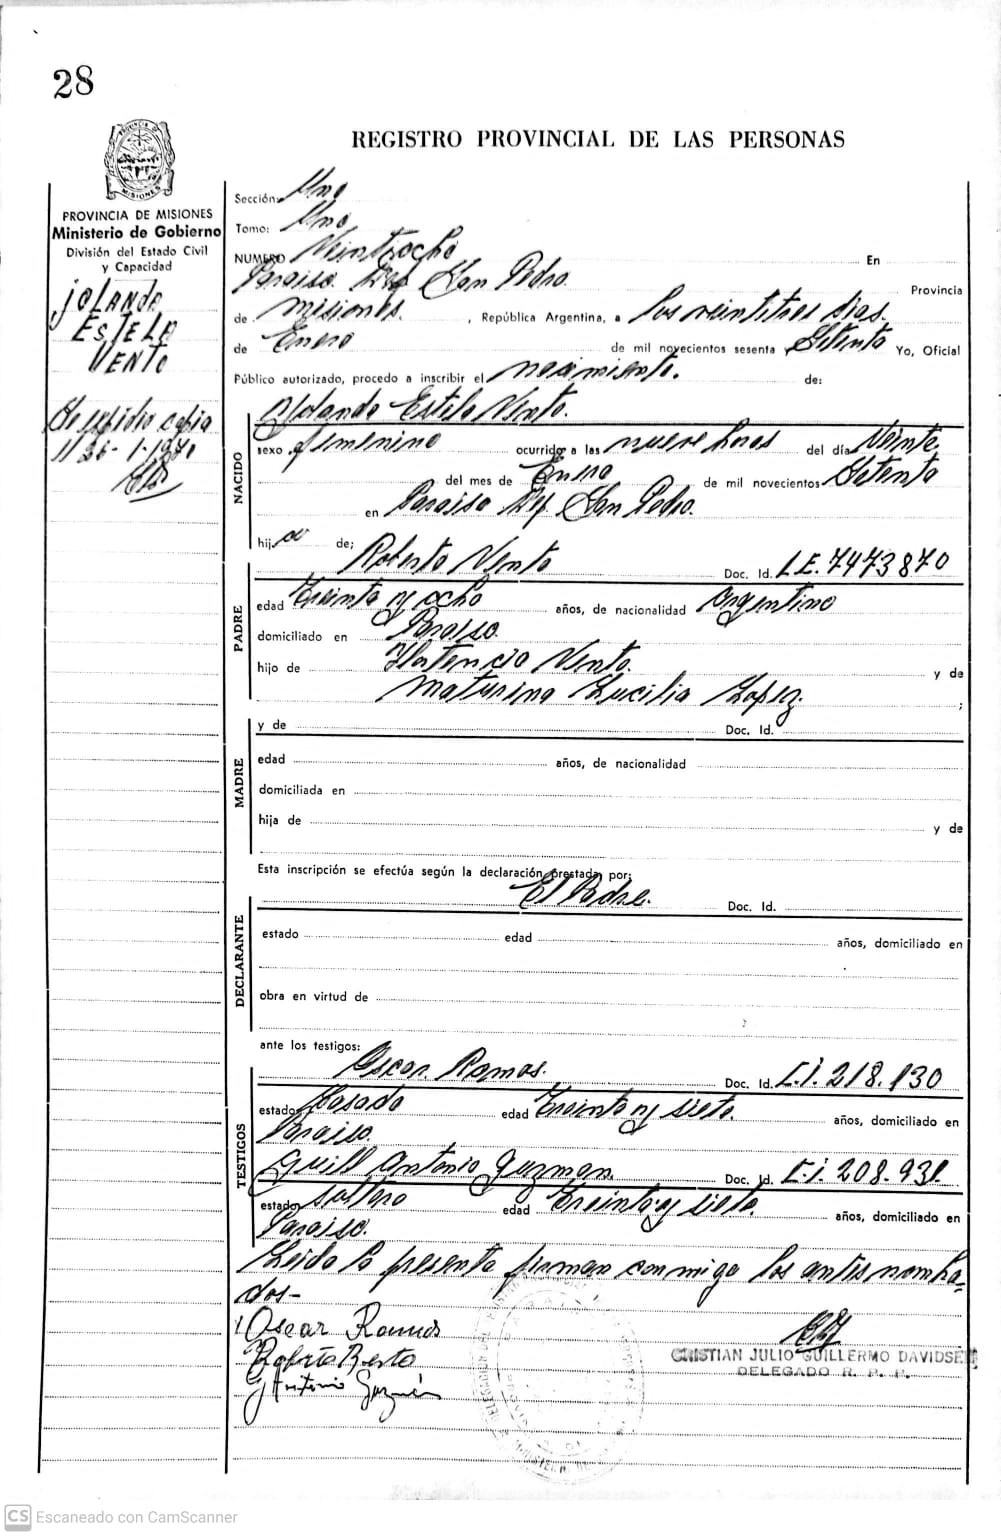 28
REGISTRO PROVINCIAL DE LAS PERSONAS
PROVINCIA DE MISIONES
Ministerio de Gobierno
División del Estado Civil
y Capacidad
jOLANDA
ESTELA
VENTO
Se expidio copia
1/ 26-1-1970
Sección: Uno
Tomo: Uno
NUMERO Veintiocho En
Paraiso Dep. San Pedro. Provincia
de Misiones. , República Argentina, a los veintitres dias.
de Enero de mil novecientos sesenta y Setenta Yo, Oficial
Público autorizado, procedo a inscribir el nacimiento. de:
NACIDO
Yolanda Estela Vento.
sexo femenino ocurrido a las nueve horas del día Veinte
del mes de Enero de mil novecientos Setenta
en Paraiso Dep. San Pedro.
hij a de;
PADRE
Roberto Vento Doc. Id. L.E. 7473870
edad Treinta y ocho años, de nacionalidad Argentino
domiciliado en Paraiso.
hijo de Vento. y de
Maturina Lucilia Lopez ;
MADRE
y de Doc. Id.
edad años, de nacionalidad
domiciliada en
hija de y de
Esta inscripción se efectúa según la declaración prestada por:
DECLARANTE
El Padre. Doc. Id.
estado edad años, domiciliado en
obra en virtud de
ante los testigos:
TESTIGOS
Oscar Ramos. Doc. Id. C.I. 218.130
estado Casado edad Treinta y siete. años, domiciliado en
Paraiso.
Antonio Guzman. Doc. Id. C.I. 208.931.
estado soltero edad Treinta y siete años, domiciliado en
Paraiso.
Leida la presente firman conmigo los antes nombra-
dos-
Oscar Ramos
Roberto
Antonio Guzmán
CRISTIAN JULIO GUILLERMO DAVIDSE
DELEGADO R. P. P.
CS Escaneado con CamScanner